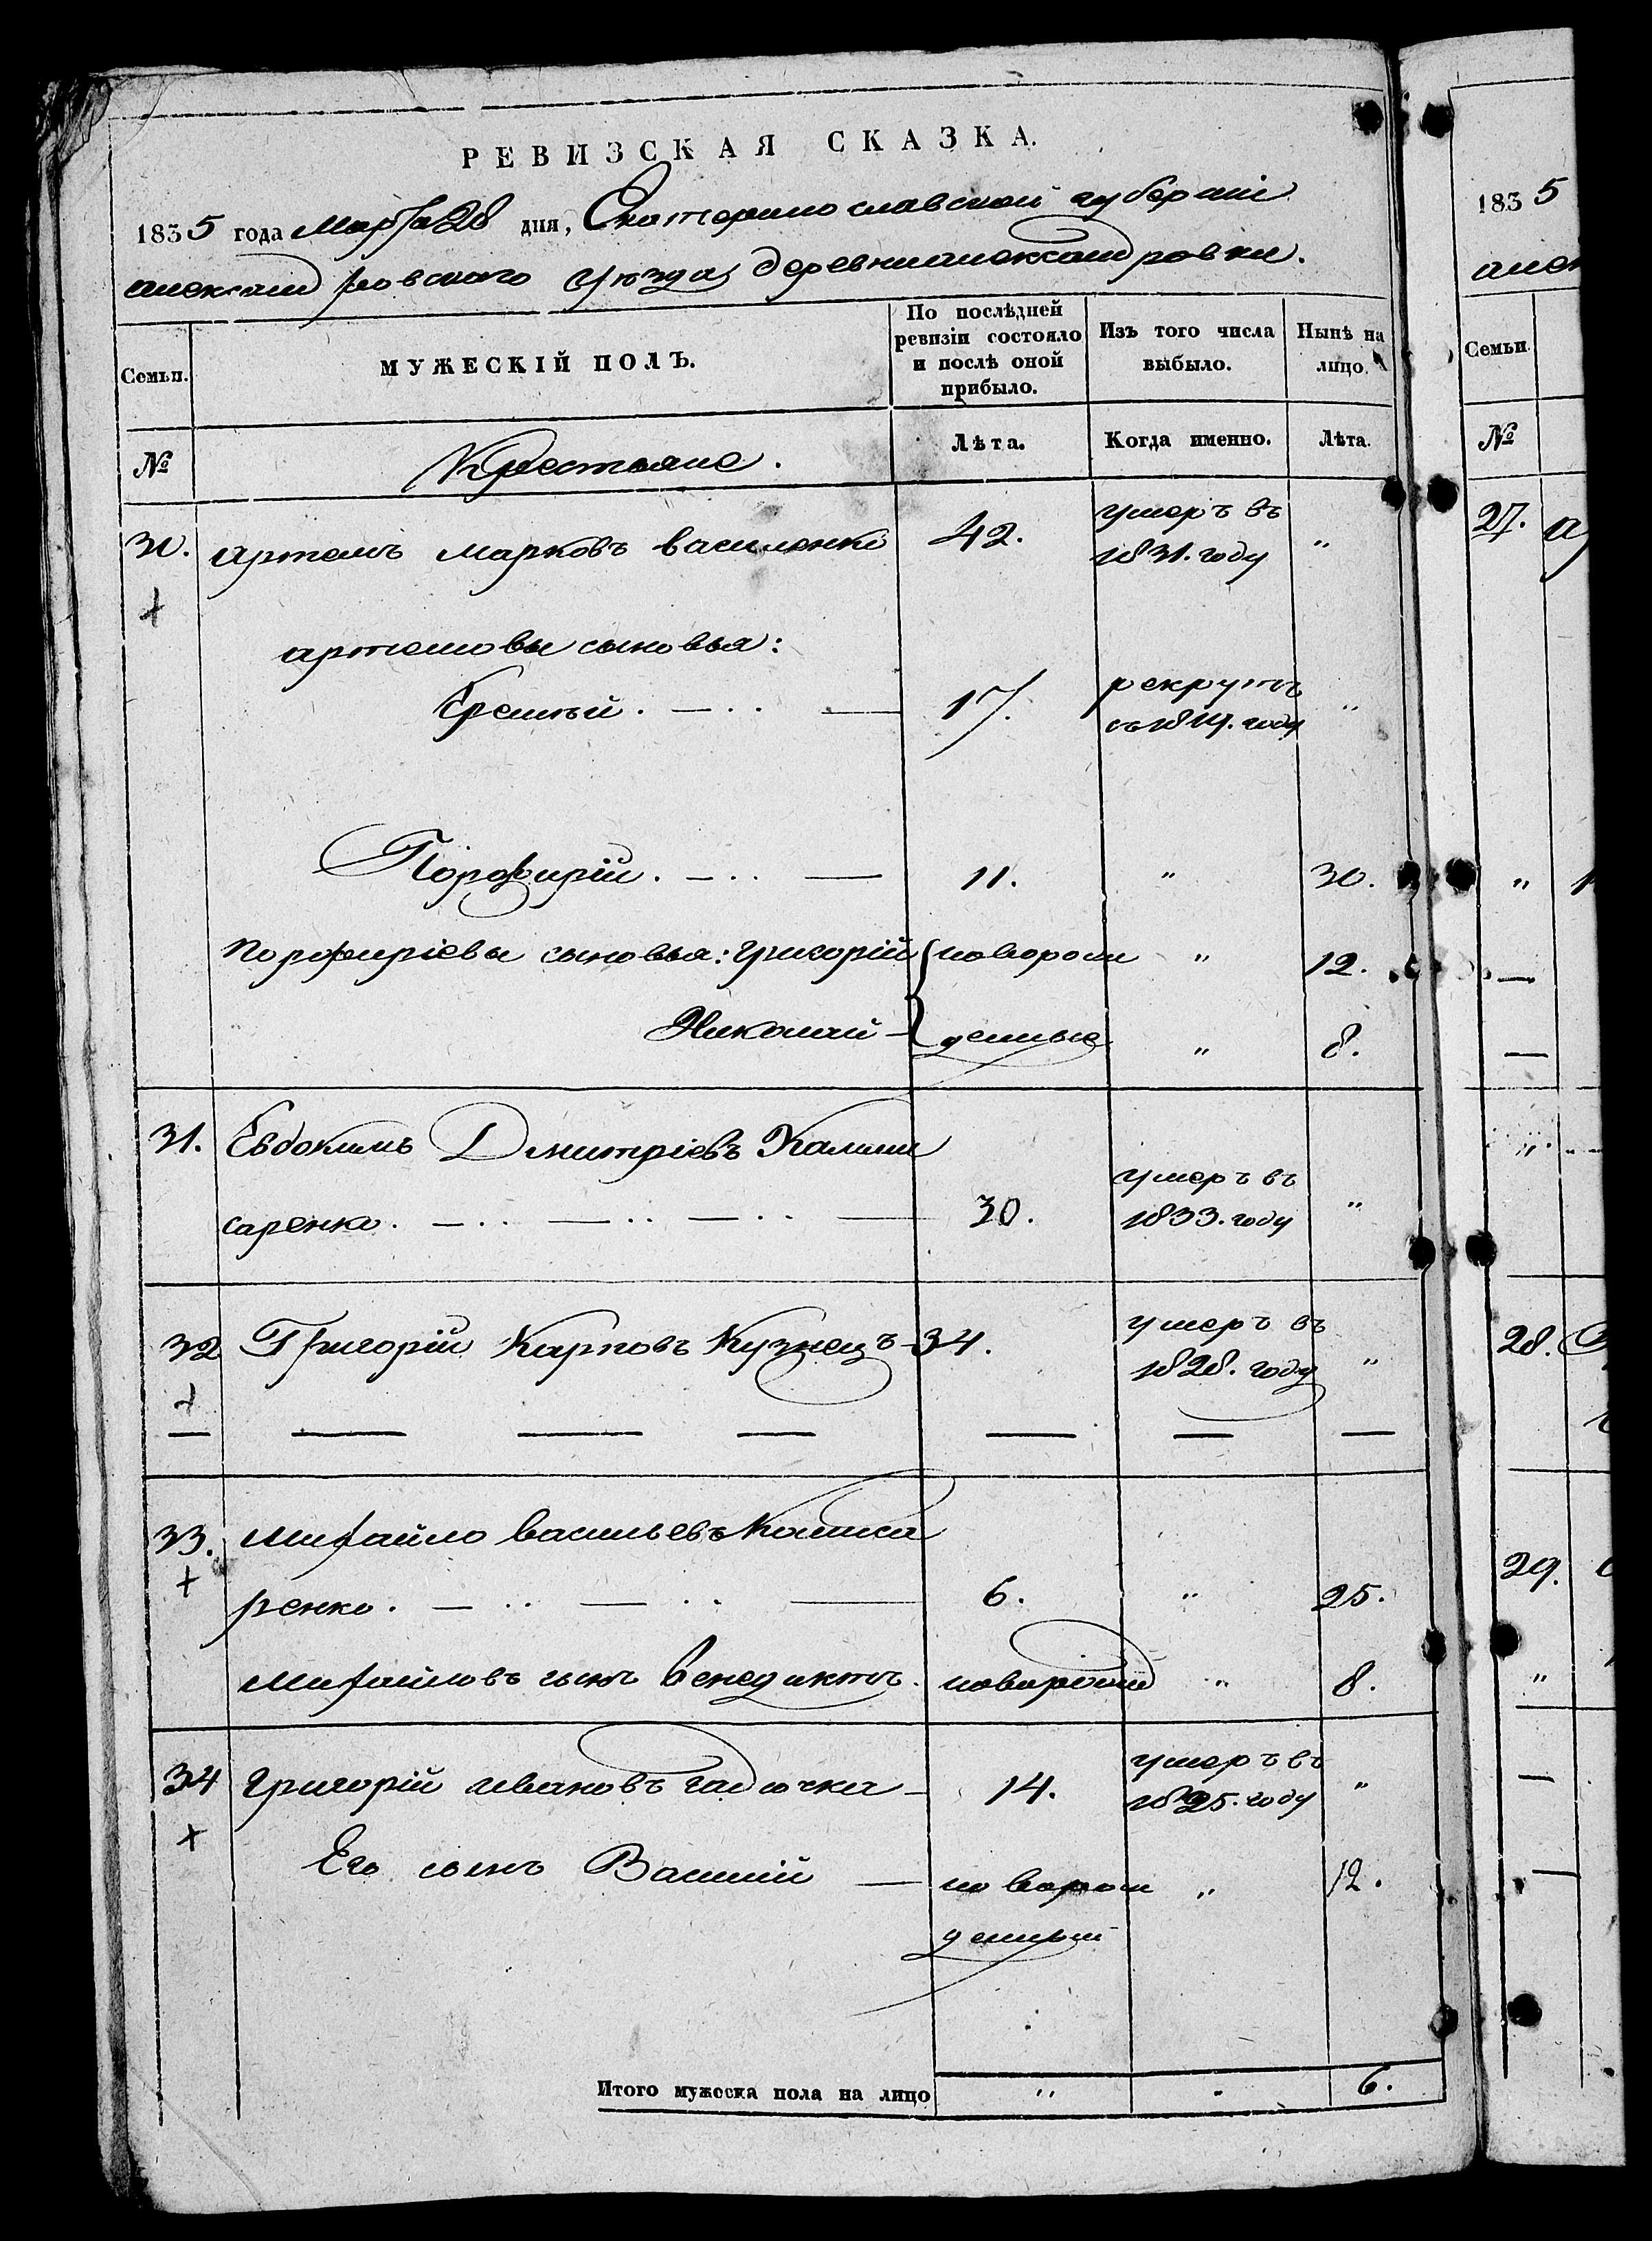 РЕВИЗСКАЯ СКАЗКА.
1835 года Марта 28 дня, Екатеринославской губерніи
александровского уѣзда, деревни александровки.
Семьи. МУЖЕСКІЙ ПОЛЪ. По послѣдней ревизіи состояло и послѣ оной прибыло. Изъ того числа выбыло. Нынѣ на лицо.
№ Крестьяне. Лѣта. Когда именно. Лѣта.
30. артемъ марковъ василенко 42. умеръ въ 1831. году "
+
артемовы сыновья:
Еремѣй. — . . — 17. рекрутъ въ 1819. году "
Порфирій. — . . — 11. " 30.
порфиріевы сыновья: григорій новорож " 12.
Николай — денные " 8.
31. Евдокимъ Дмитріевъ Комли
саренко. — . . — . . — . . — 30. умеръ въ 1833. году "
32 Григорій Карповъ Кузнецъ - 34. умеръ въ 1828. году "
+
33. михайло васильевъ Комиса
+
ренко. — . . — . . — 6. " 25.
михайловъ сынъ венедиктъ. новорожд " 8.
34 григорій ивановъ гадючка — 14. умеръ въ 1825. году "
+
Его сынъ Василій — новорож " 12.
денный
Итого мужеска пола на лицо " - 6.
1835
алек
Семьи.
№
27. а
"
28.
29.
"